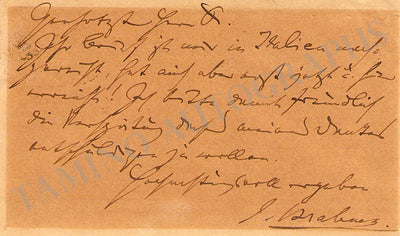 Geehrtester Herr
Ihr Brief ist mir in Italien nach-
gereist, hat mich aber erst jetzt u. hier
erreicht! Ich bitte damit freundlich
die Verspätung meines Dankes
entschuldigen zu wollen.
Hochachtungsvoll ergeben
J. Brahms.
TAMINO AUTOGRAPHS